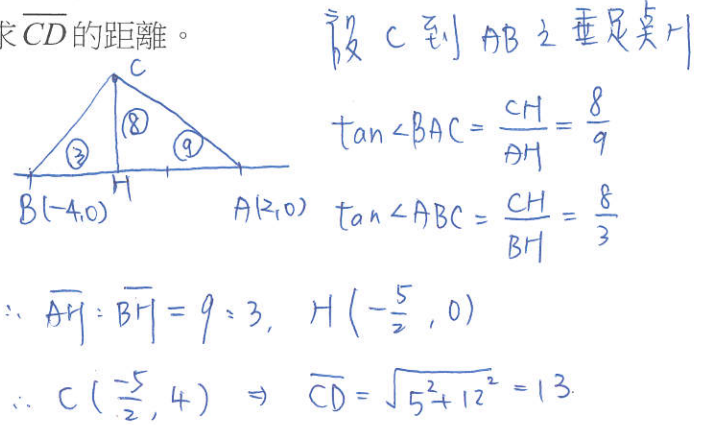 求 $\overline{CD}$ 的距離。
設 C 到 AB 之垂足為 H
C
⑧
③
⑨
H
B(-4,0)
A(2,0)
tan∠BAC = CH/AH = 8/9
tan∠ABC = CH/BH = 8/3
∴ $\overline{AH}$ : $\overline{BH}$ = 9 : 3, H(-5/2, 0)
∴ C(-5/2, 4) ⇒ $\overline{CD}$ = √(5²+12²) = 13.